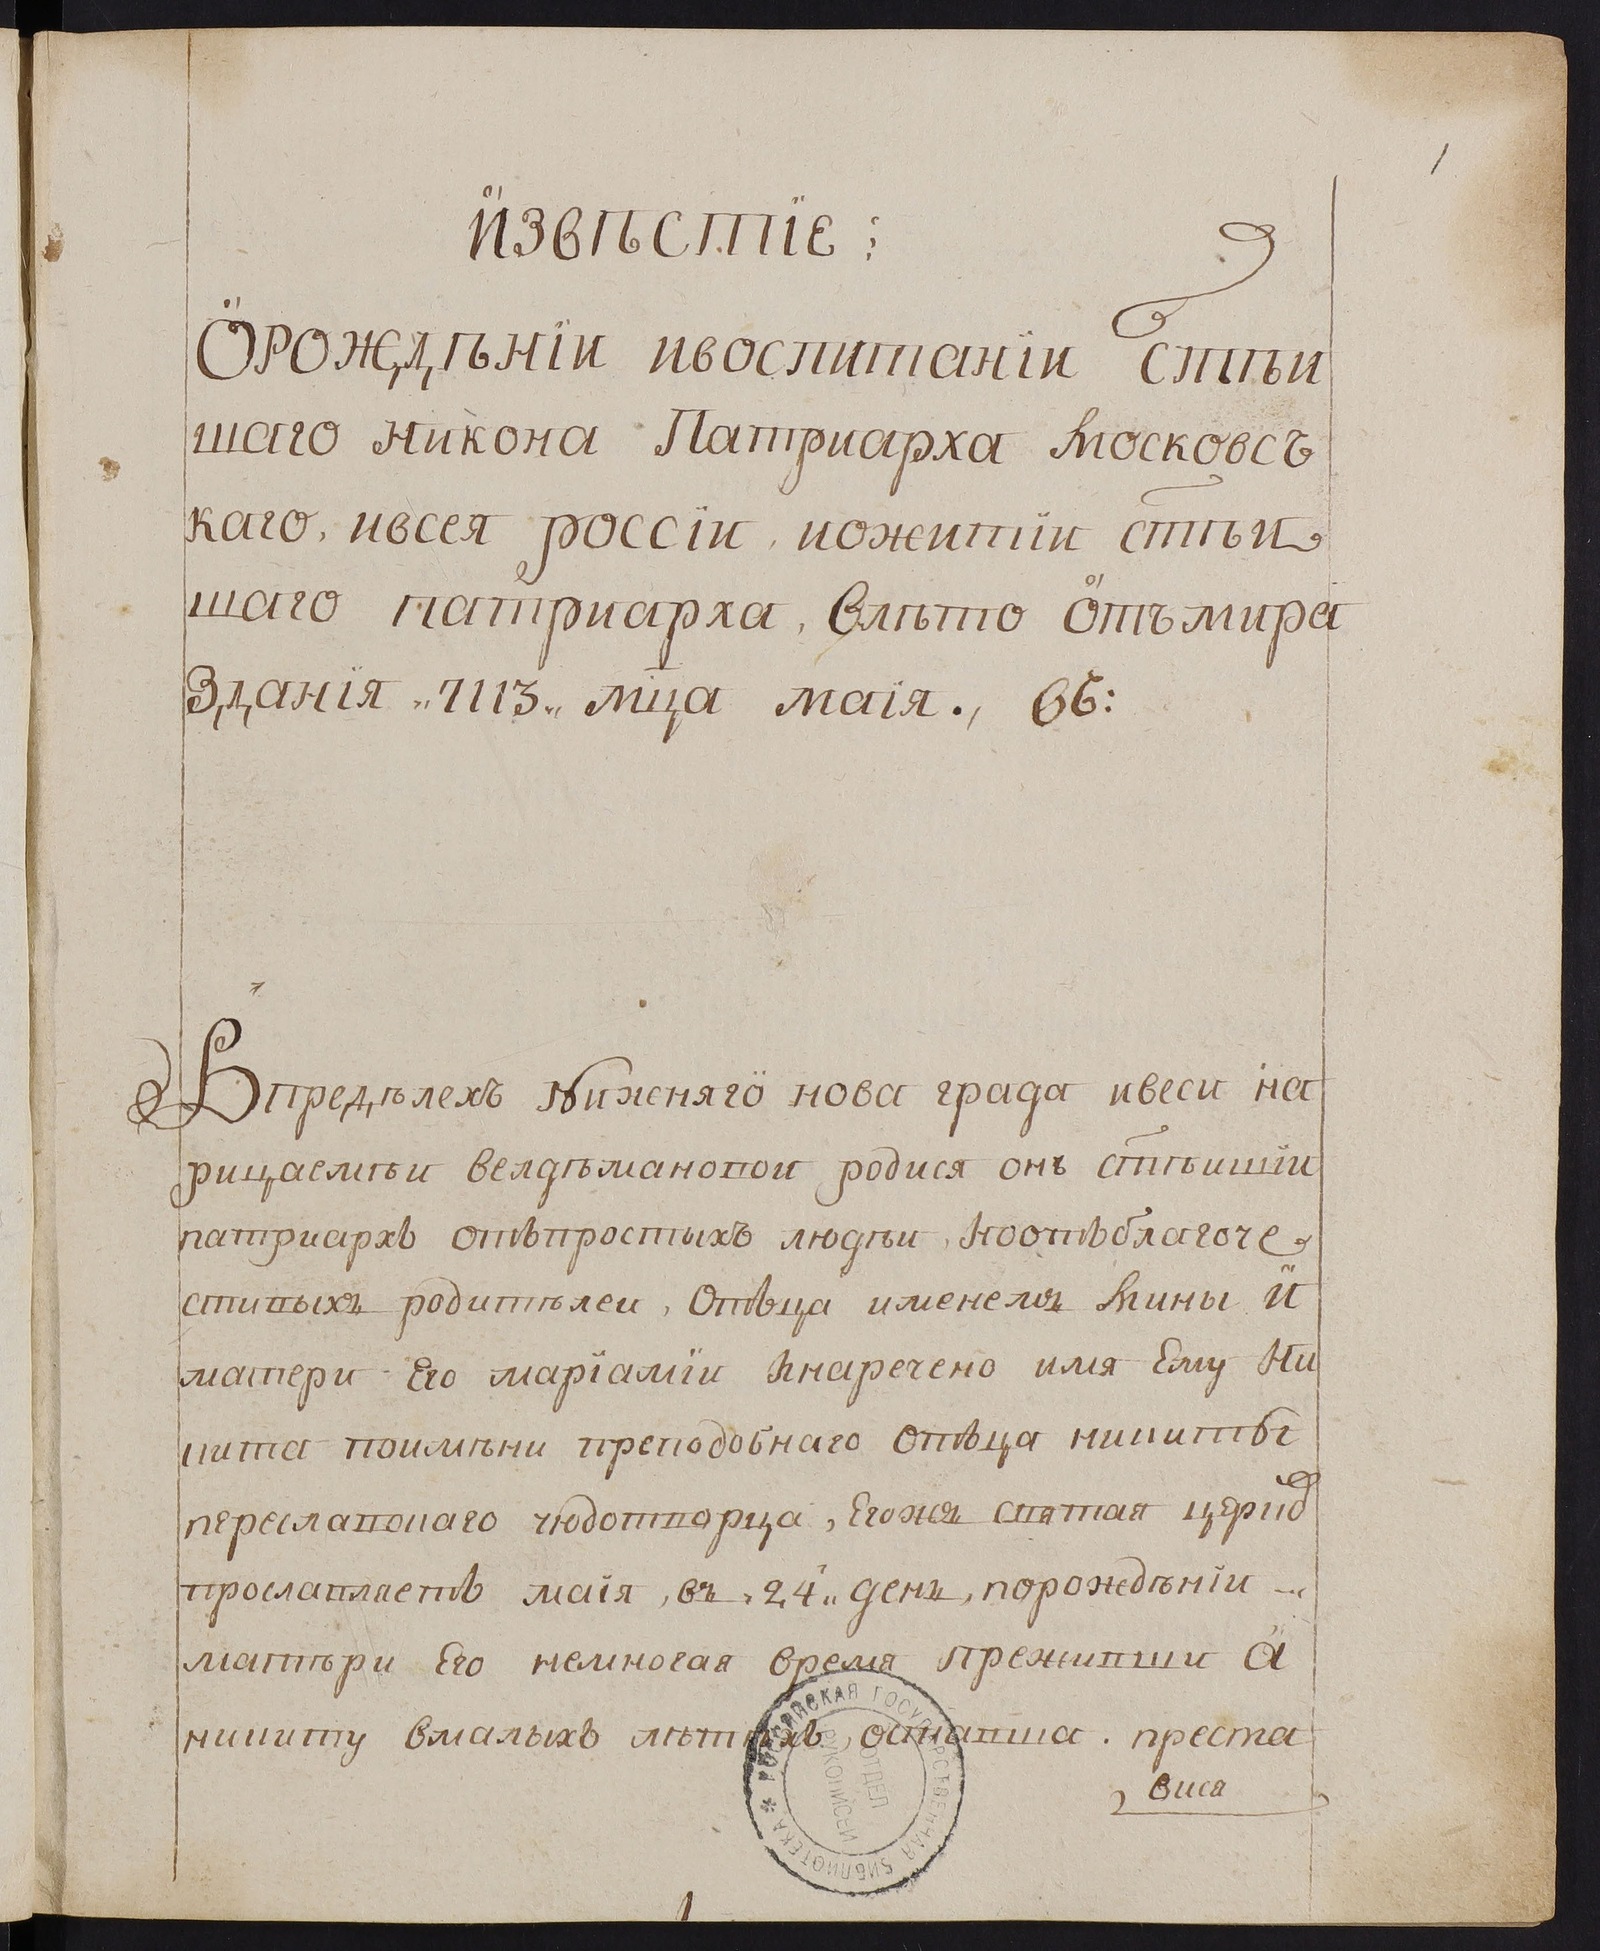 1
ИЗВѢСТІЕ:
ОРОЖДѢНІИ ивоспитаніи стѣи
шаго никона Патриарха московсъ
каго, ивсея россіи, иожитіи стѣи
шаго патриарха, влѣто отъмира
зданія „7113„ мца маія., вб:
Впредѣлехъ нижняго нова града ивеси на
рицаемѣи велдѣмановои родися онъ стѣишіи
патриархъ отъпростыхъ людѣи, ноотъблагоче
стивыхъ родитѣлеи, отъца именемъ мины и
матери его маріаміи инаречено имя ему ни
кита поимѣни преподобнаго отъца никиты
переславскаго чюдотворца, егоже святая црковь
прославляетъ маія, въ „24„ день, порождѣніи
матѣри его немногая время прежившии а
никиту вмалыхъ лѣтахъ оставша. преста
вися
РОССИЙСКАЯ ГОСУДАРСТВЕННАЯ БИБЛИОТЕКА *
ОТДЕЛ
РУКОПИСЕЙ